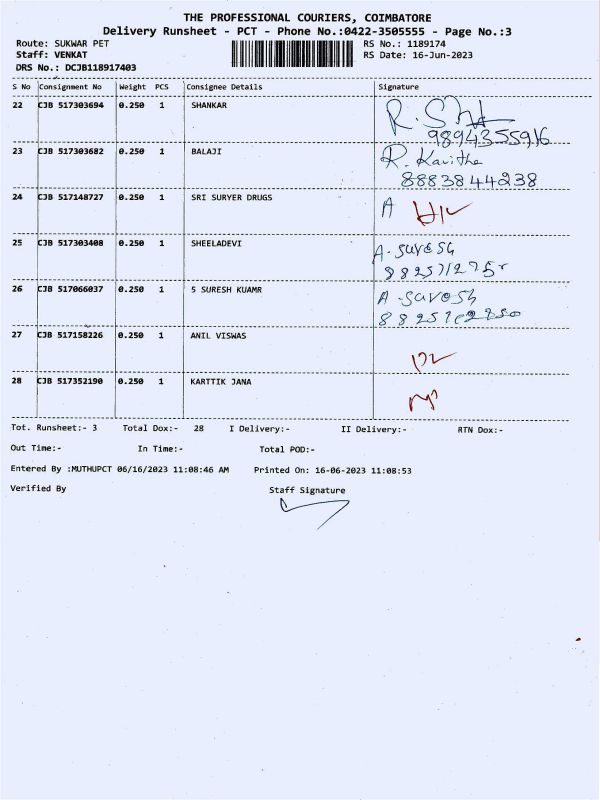 THE PROFESSIONAL COURIERS, COIMBATORE
Delivery Runsheet - PCT - Phone No.:0422-3505555 - Page No.:3
Route: SUKWAR PET RS No.: 1189174
Staff: VENKAT RS Date: 16-Jun-2023
DRS No.: DCJB118917403
S No Consignment No Weight PCS Consignee Details Signature
22 CJB 517303694 0.250 1 SHANKAR
9894355916
23 CJB 517303682 0.250 1 BALAJI R. Kavitha
8883844238
24 CJB 517148727 0.250 1 SRI SURYER DRUGS A
25 CJB 517303408 0.250 1 SHEELADEVI A. SURESH
26 CJB 517066037 0.250 1 S SURESH KUAMR A. SURESH
27 CJB 517158226 0.250 1 ANIL VISWAS
28 CJB 517352190 0.250 1 KARTTIK JANA
Tot. Runsheet:- 3 Total Dox:- 28 I Delivery:- II Delivery:- RTN Dox:-
Out Time:- In Time:- Total POD:-
Entered By :MUTHUPCT 06/16/2023 11:08:46 AM Printed On: 16-06-2023 11:08:53
Verified By Staff Signature